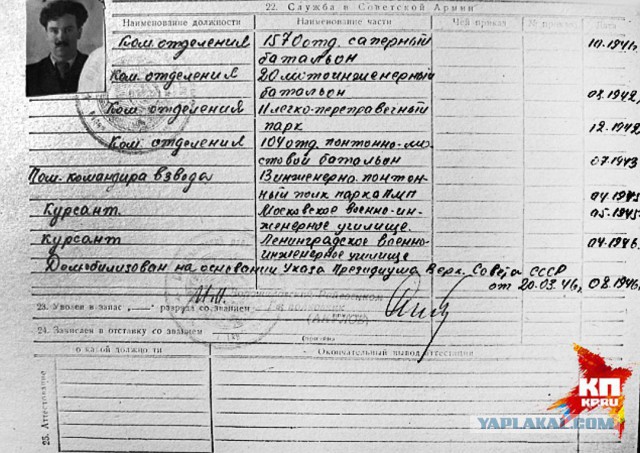 22. Служба в Советской Армии
Наименование должности Наименование части Чей приказ № пр. Дата
Ком. отделения 1570 отд. саперный 10.1941г.
батальон
Ком. отделения 20 мотоинженерный
батальон 03.1942г.
Ком. отделения 11 легко-переправочный
парк 12.1942
Ком. отделения 104 отд. понтонно-мо-
стовой батальон 07.1943
Пом. командира взвода 13 инженерно. понтон-
ный полк парка ПМП 04.1945
Курсант. Московское военно-ин- 05.1945г.
женерное училище.
курсант Ленинградское военно- 04.1946.
инженерное училище
Демобилизован на основании Указа Президиума Верх. Совета СССР
от 20.03.46г. 08.1946г.
23. Уволен в запас „ “ разряда со званием
24. Зачислен в отставку со званием
о какой должности Окончательный вывод аттестации
25. Аттестование
КП
KP.RU
YAPLAKAL.COM